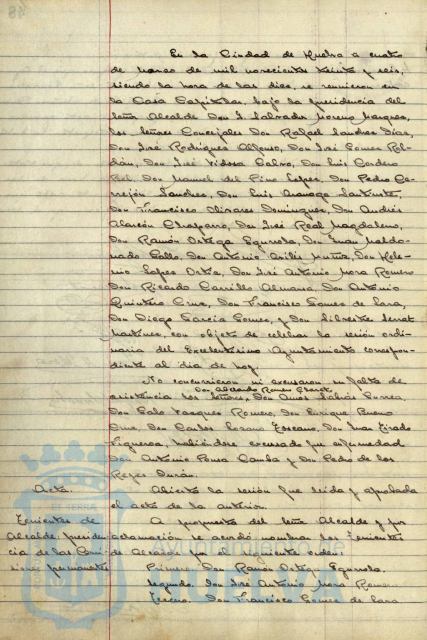 En la Ciudad de Huelva a cuatro
de marzo de mil novecientos treinta y seis,
siendo la hora de las diez, se reunieron en
la Casa Capitular, bajo la presidencia del
Señor Alcalde Don Salvador Moreno Márquez,
los Señores Concejales Don Rafael Sánchez Díaz,
Don José Rodríguez Alfonso, Don José Gómez Rol-
dán, Don José Vidosa Calvo, Don Luis Cordero
Bel, Don Manuel del Pino López, Don Pedro Ce-
rrejón Sánchez, Don Luis
Don Francisco Olivares Domínguez, Don Andrés
Alarcón Chaparro, Don José Real Magdaleno,
Don Ramón Ortega Don Juan Maldo-
nado Gallo, Don Antonio Muñoz, Don
López Ortiz, Don José Antonio Mora Romero
Don Ricardo Carrillo Almansa, Don Antonio
Quintero Cruz, Don Francisco Gómez de Lara,
Don Diego García Gómez, y Don Silvestre Serrat
Martínez, con objeto de celebrar la sesión ordi-
naria del Excelentísimo Ayuntamiento correspon-
diente al día de hoy.
No concurrieron ni excusaron su falta de
asistencia los Señores, Don Amós Sabrás Gurrea,
Don Galo Vázquez Romero, Don Enrique Bueno
Cruz, Don Carlos Lozano Toscano, Don Juan Tirado
Figueroa, habiéndose excusado por enfermedad
Don Antonio Pousa Camba y Don Pedro de los
Reyes Durán.
Acta. Abierta la sesión fue leída y aprobada
el acta de la anterior.
Tenientes de A propuesta del Señor Alcalde y por
Alcalde, aclamación se acordó nombrar los Tenientes
cia de las Comi- de Alcalde por el siguiente orden:
siones permanentes Primero. Don Ramón Ortega
Segundo. Don José Antonio Mora Romero
Tercero. Don Francisco Gómez de Lara